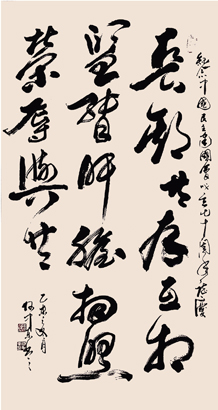 紀念中國民主建國會成立七十周年誌慶
長期共存互相
監督肝膽相照
榮辱與共
乙未之夏月